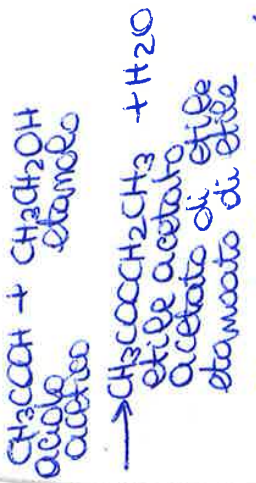 CH3COOH + CH3CH2OH
acido etanolo
acetico
→ CH3COCCH2CH3 + H2O
etile acetato
acetato di etile
etanoato di etile